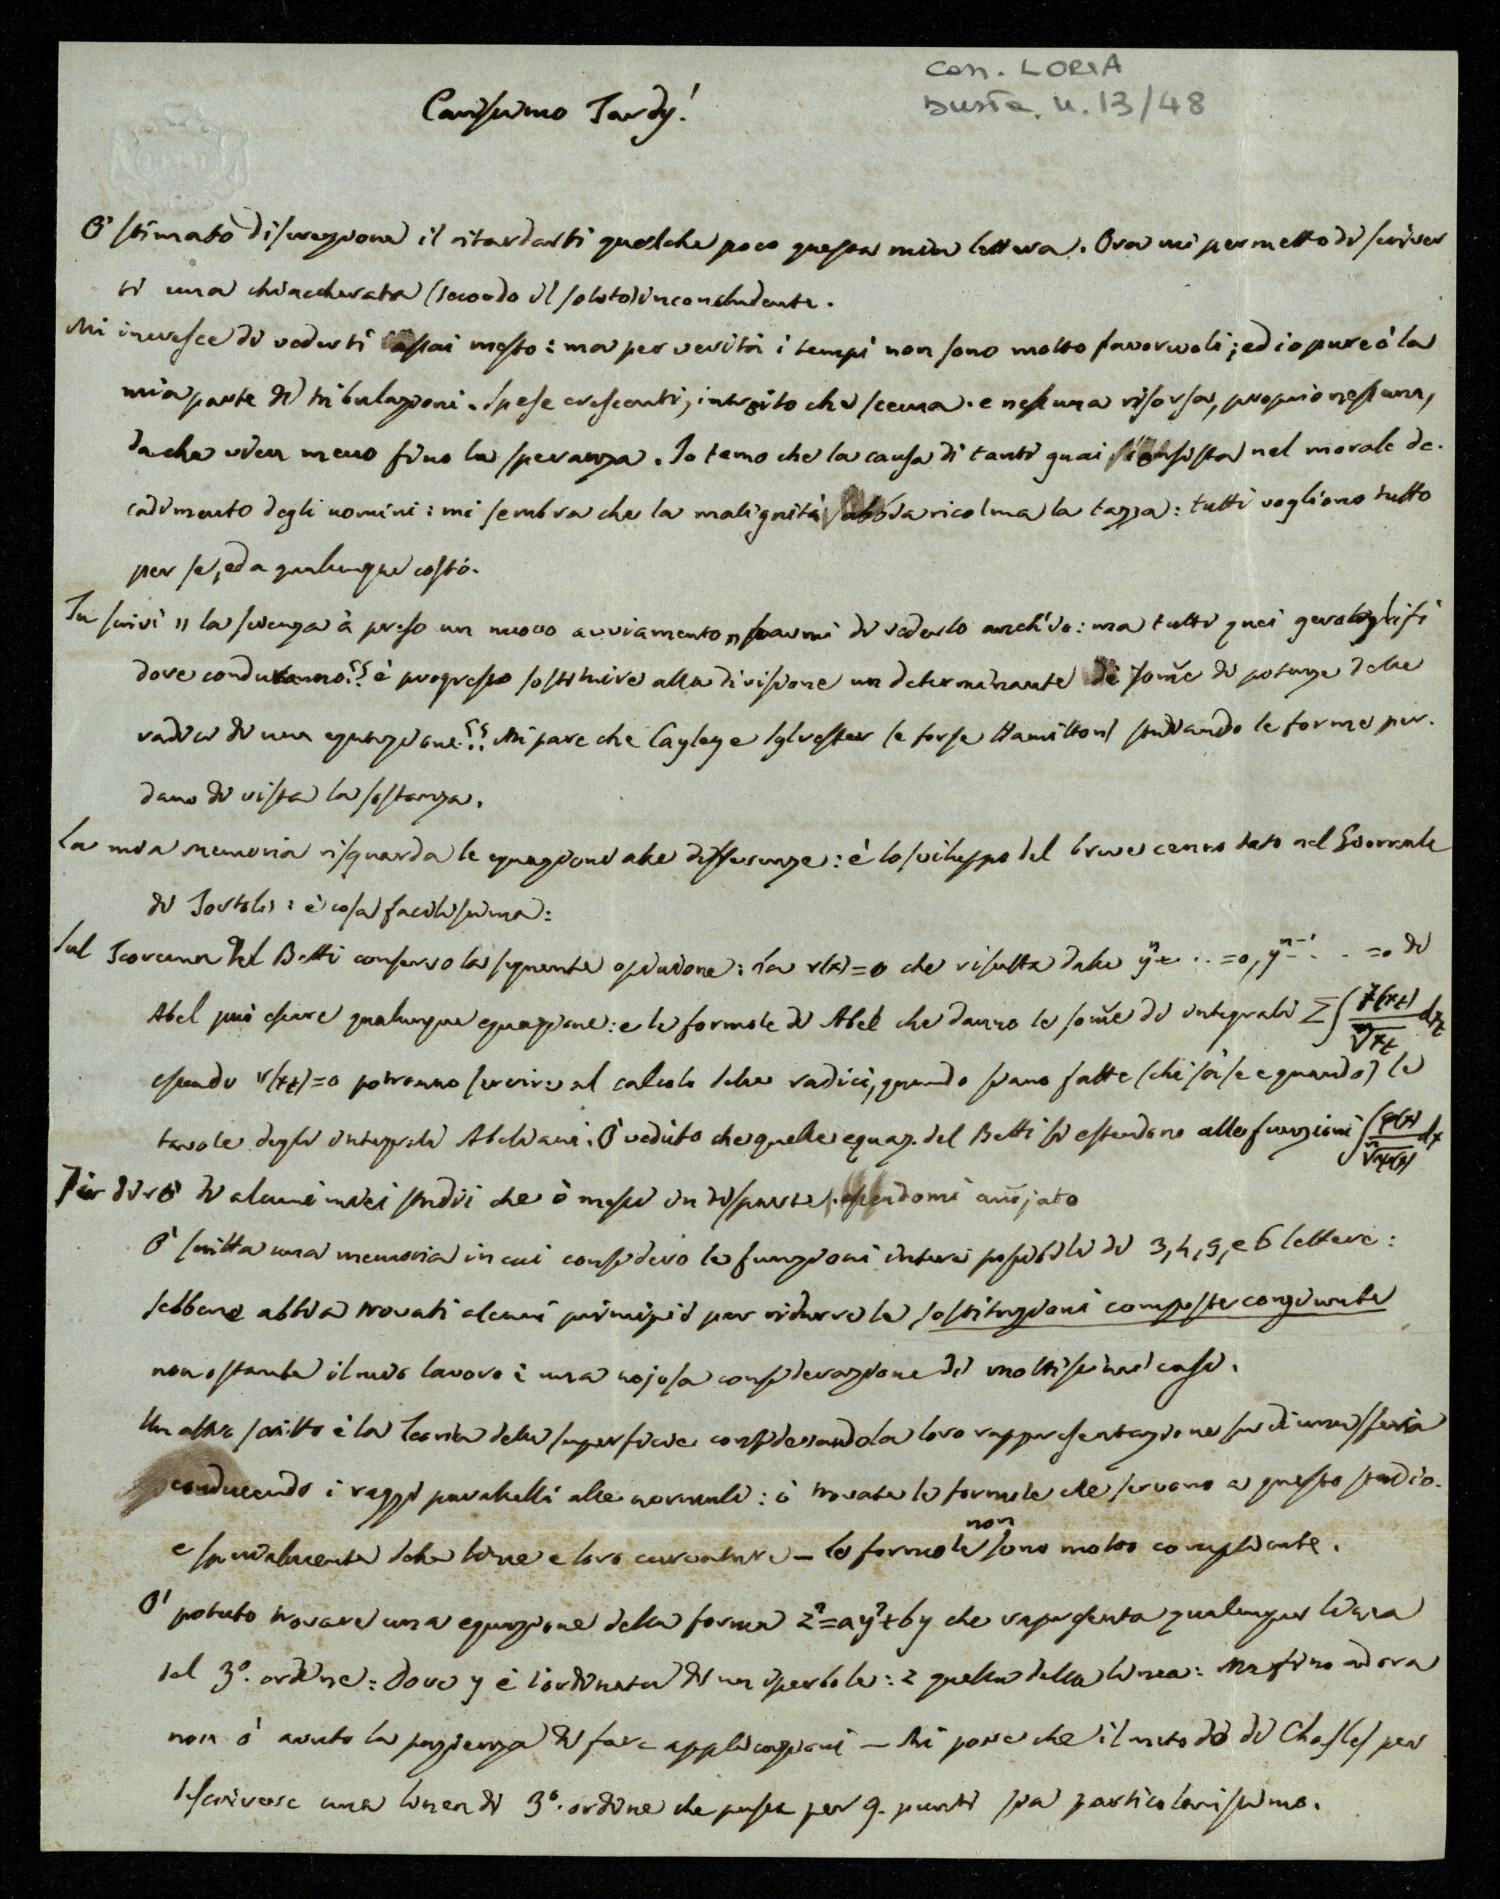 con. LORIA
busta n. 13/48
Carissimo Tardy!
Ò stimato discrezione il ritardarti qualche poco questa mia lettera. Ora mi permetto di scriver
ti una chiaccherata (secondo il solito) inconcludente.
Mi incresce di vederti assai mesto: ma per verità i tempi non sono molto favorevoli; ed io pure ò la
mia parte di tribulazioni. Spese crescenti, introito che scema. e nessuna risorsa, proprio nessuna,
da che vien meno fino la speranza. Io temo che la causa di tanti guai consista nel morale de-
cadimento degli uomini: mi sembra che la malignità abbia ricolma la tazza: tutti vogliono tutto
per se, ed a qualunque costo.
Tu scrivi „ la scienza à preso un nuovo avviamento „ parmi di vederlo anch'io: ma tutti quei geroglifi
dove conduranno?? è progresso sostituire alla divisione un determinante di some di potenze delle
radici di una equazione?? Mi pare che Cayley e Sylvester (e forse Hamilton) studiando le forme per-
dano di vista la sostanza.
La mia memoria risguarda le equazioni alle differenze: è lo sviluppo del breve cenno dato nel Giornale
di Tortolini: è cosa facilissima:
Sul Teorema del Betti conservo la seguente opinione: la r(x)=0 che risulta dalle yⁿ+ ..=0, yⁿ⁻¹- .. =0 di
Abel può essere qualunque equazione: e le formole di Abel che danno le some di integrali Σ∫
essendo r(x_t)=0 potranno servire al calcolo delle radici, quando siano fatte (chi sà se e quando) le
tavole degli integrali Abeliani. Ò veduto che quelle equaz. del Betti si estendono alle funzioni ∫
Ti dirò di alcuni miei studii che ò messi in disparte, essendomi anojato
Ò scritta una memoria in cui considero le funzioni intere possibili di 3, 4, 5, e 6 lettere:
sebbene abbia trovati alcuni principii per ridurre le sostituzioni composte congiunte
non ostante il mio lavoro è una nojosa considerazione di moltissimi casi.
Un altro scritto è la Teoria delle superficie considerando la loro rappresentazione su di una sferia
conducendo i raggi paralleli alle normali: ò trovate le formole che servono a questo studio.
e specialmente delle linee e loro curvature – le formole non sono molto complicate.
Ò potuto trovare una equazione della forma z²=ay²+by che rapresenta qualunque linea
del 3°. ordine: dove y è l'ordinata di un iperbole: z quella della linea: Ma fino adora
non ò avuto la pazienza di fare applicazioni – Mi pare che il metodo di Chasles per
descrivere una linea di 3°. ordine che passa per 9. punti sia particolarissimo.